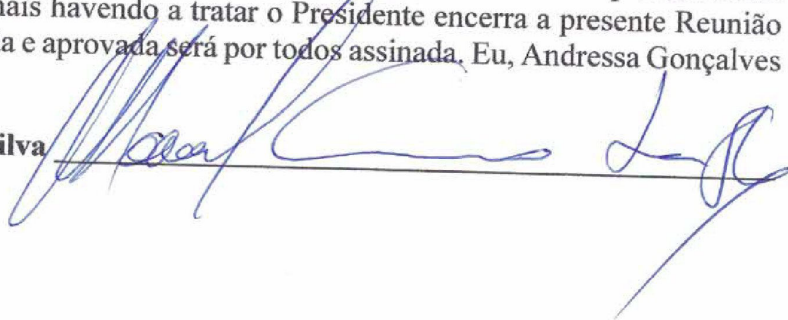 mais havendo a tratar o Presidente encerra a presente Reunião
a e aprovada será por todos assinada. Eu, Andressa Gonçalves
ilva